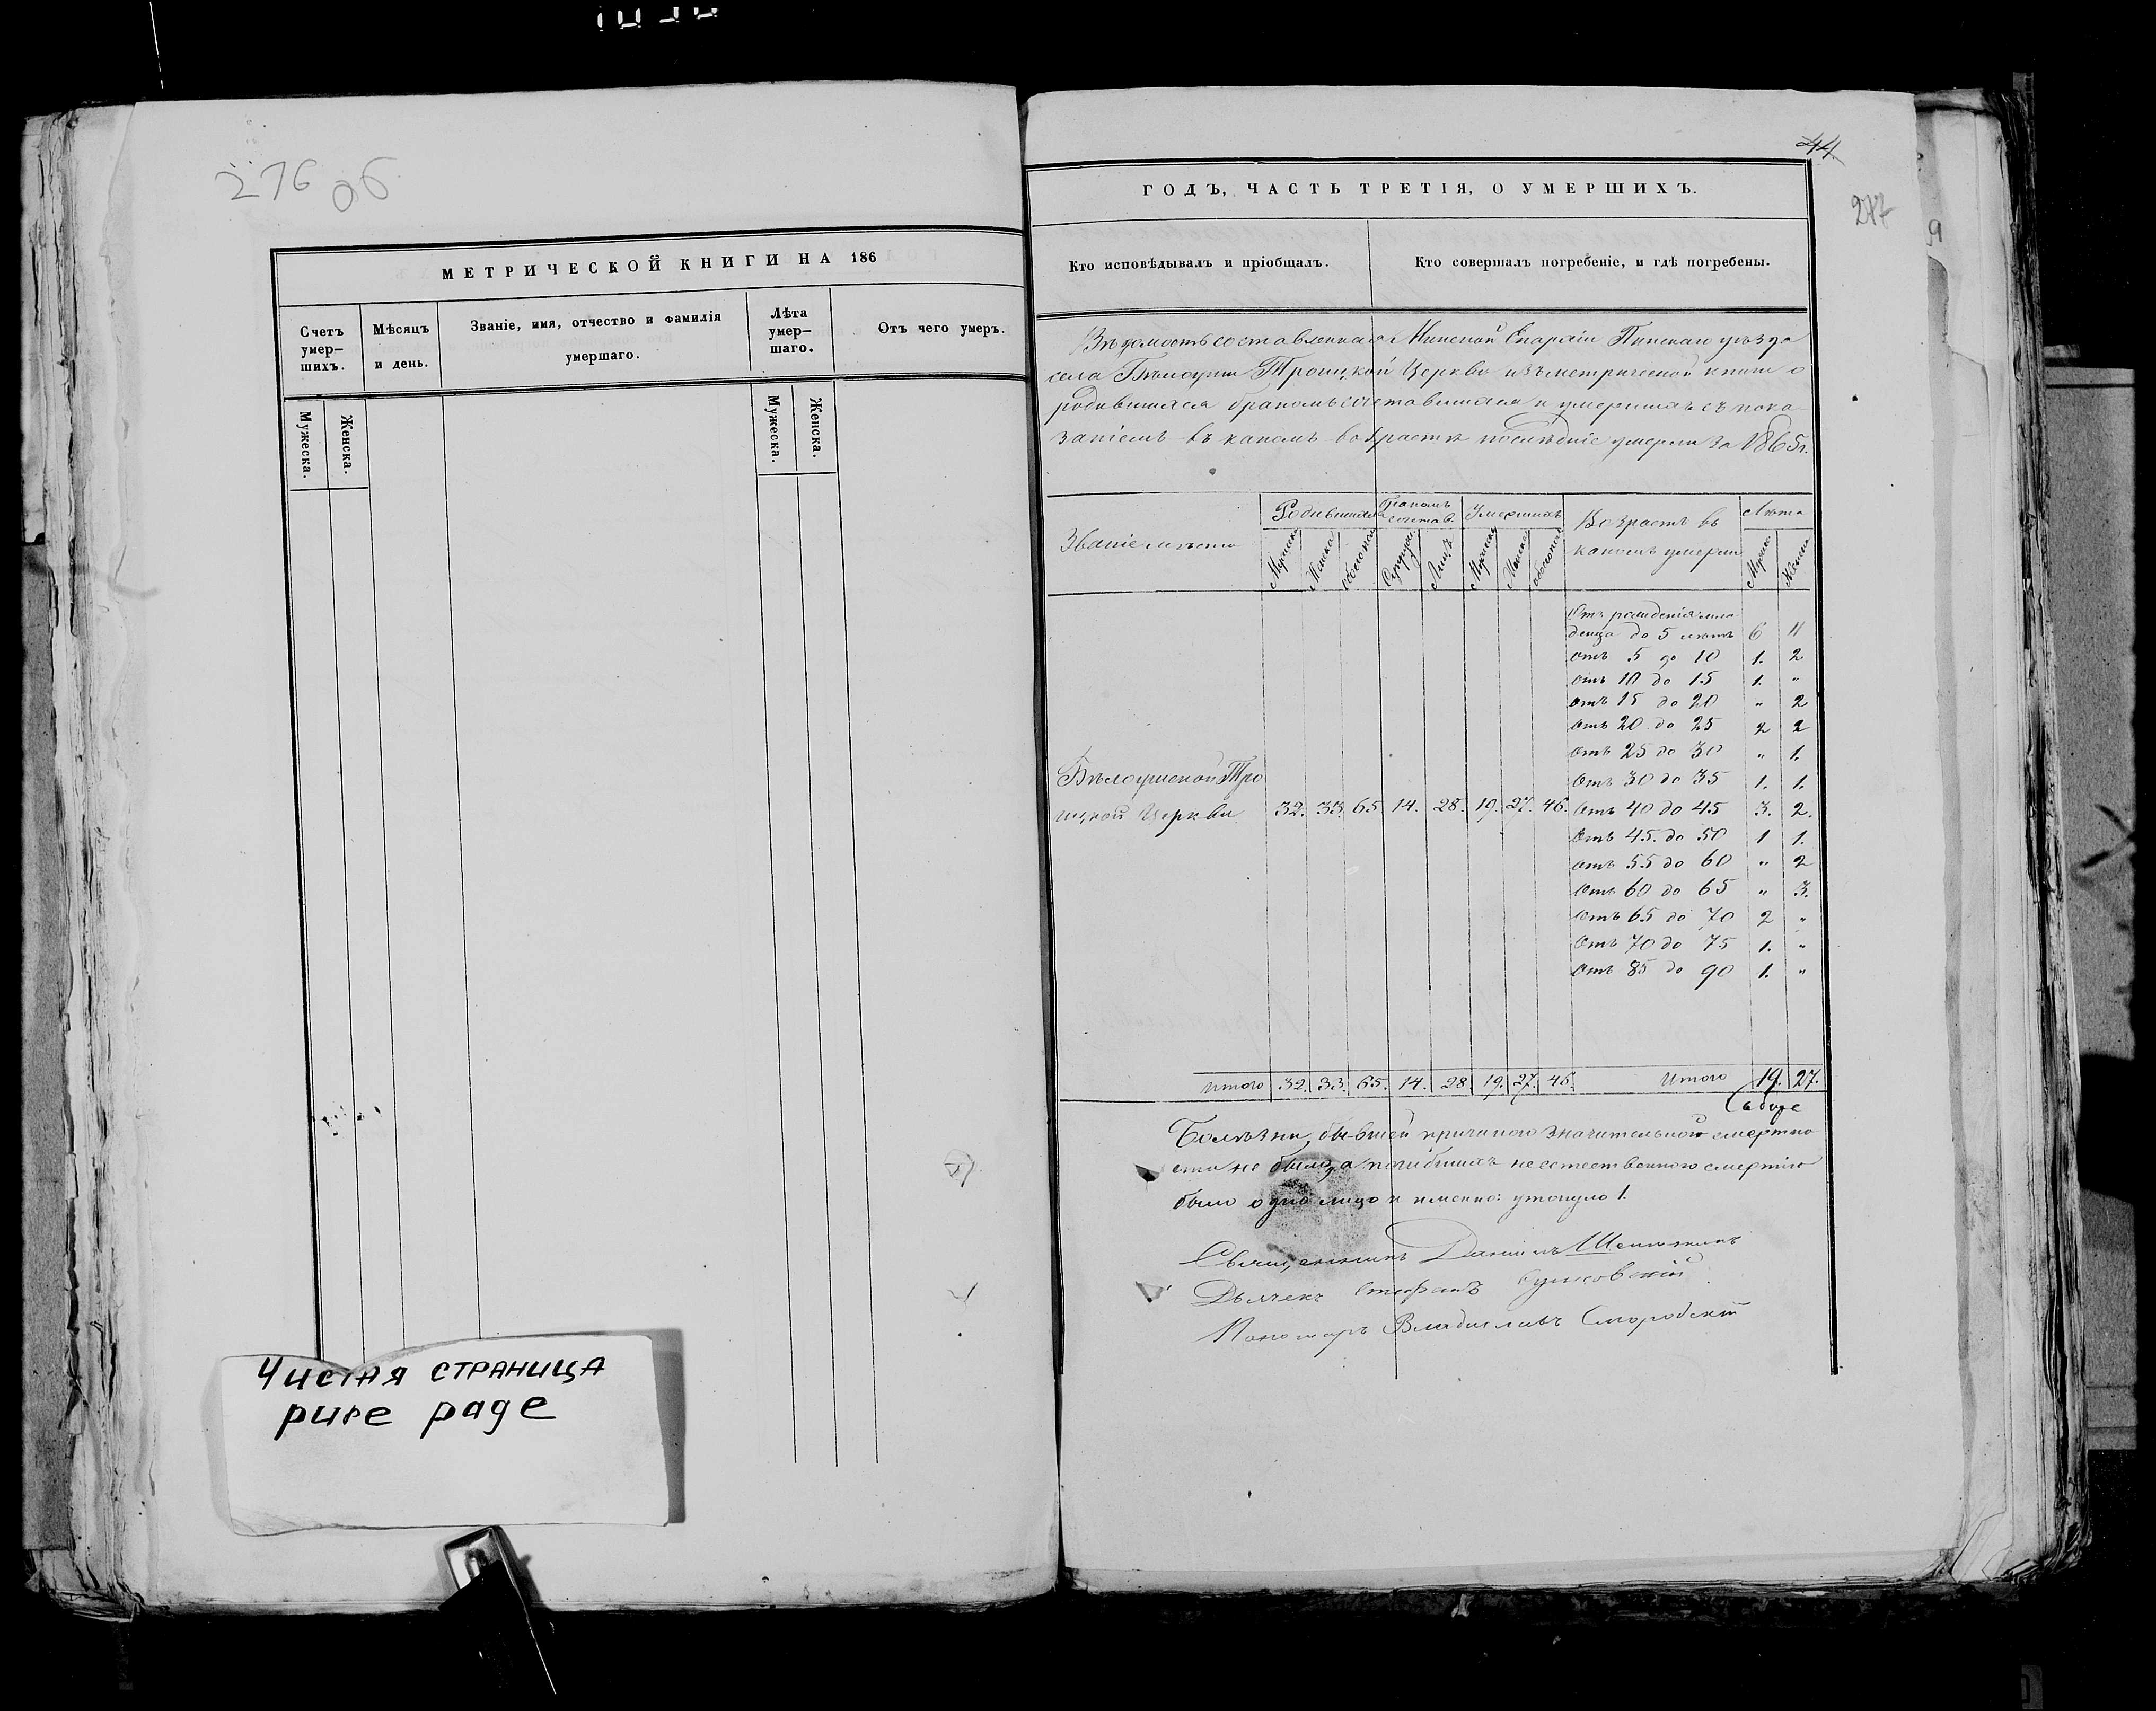 276 об
МЕТРИЧЕСКОЙ КНИГИ НА 186
Счетъ умер-шихъ.
Мѣсяцъ и день.
Званіе, имя, отчество и фамилія умершаго.
Лѣта умер-шаго.
Отъ чего умеръ.
Мужеска.
Женска.
Мужеска.
Женска.
Чистая страница
pure page
44
277
ГОДЪ, ЧАСТЬ ТРЕТІЯ, О УМЕРШИХЪ.
Кто исповѣдывалъ и пріобщалъ.
Кто совершалъ погребеніе, и гдѣ погребены.
Вѣдомость составленная Минской Епархіи Пинскаго уѣзда
села Бѣлоуши Троицкой Церкви изъ метрической книги о
родившихся бракомъ сочетавшихся и умершихъ съ пока
заніемъ въ какомъ возрастѣ послѣдніе умерли за 1865 г.
Званіе мѣста
Родившихся
Бракомъ сочетав.
Умершихъ
Возрастъ въ
какомъ умерли
Лѣта
Мужска
Женска
обоего пола
Супруж.
Лицъ
Мужска
Женска
обоего пола
Мужска
Женска
Отъ рожденія мла
денца до 5 лѣтъ 6 11
отъ 5 до 10 1. 2
отъ 10 до 15 1. "
отъ 15 до 20 " 2
отъ 20 до 25 2 2
отъ 25 до 30 " 1.
Отъ 30 до 35 1. 1.
Бѣлоушской Тро
ицкой Церкви 32. 33. 65 14. 28. 19. 27. 46. Отъ 40 до 45 3. 2.
Отъ 45. до 50 1 1.
отъ 55 до 60 " 2
Отъ 60 до 65 " 3.
Отъ 65 до 70 2 "
Отъ 70 до 75 1. "
Отъ 85 до 90 1. "
Итого 32. 33. 65. 14. 28 19. 27. 46. Итого 19. 27.
Болѣзни, бывшей причиною значительной смертно
сти не было, а погибшихъ неестественною смертію
было одно лицо и именно: утонуло 1.
Священникъ Даніилъ
Дьячекъ Стефанъ
Пономарь Владиславъ Смородскій